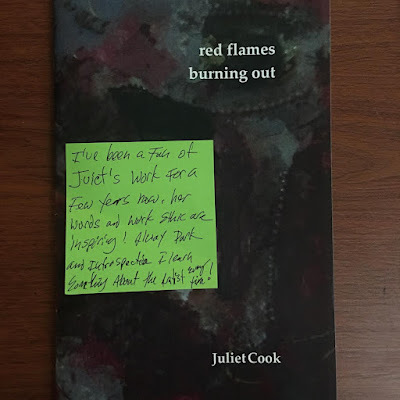 red flames
burning out
I've been a Fan of
Juiet's work For a
Few Years now, her
words and work ethic are
Inspiring! Alway Dark
and Introspective I learn
About the Latist every
time!
Juliet Cook